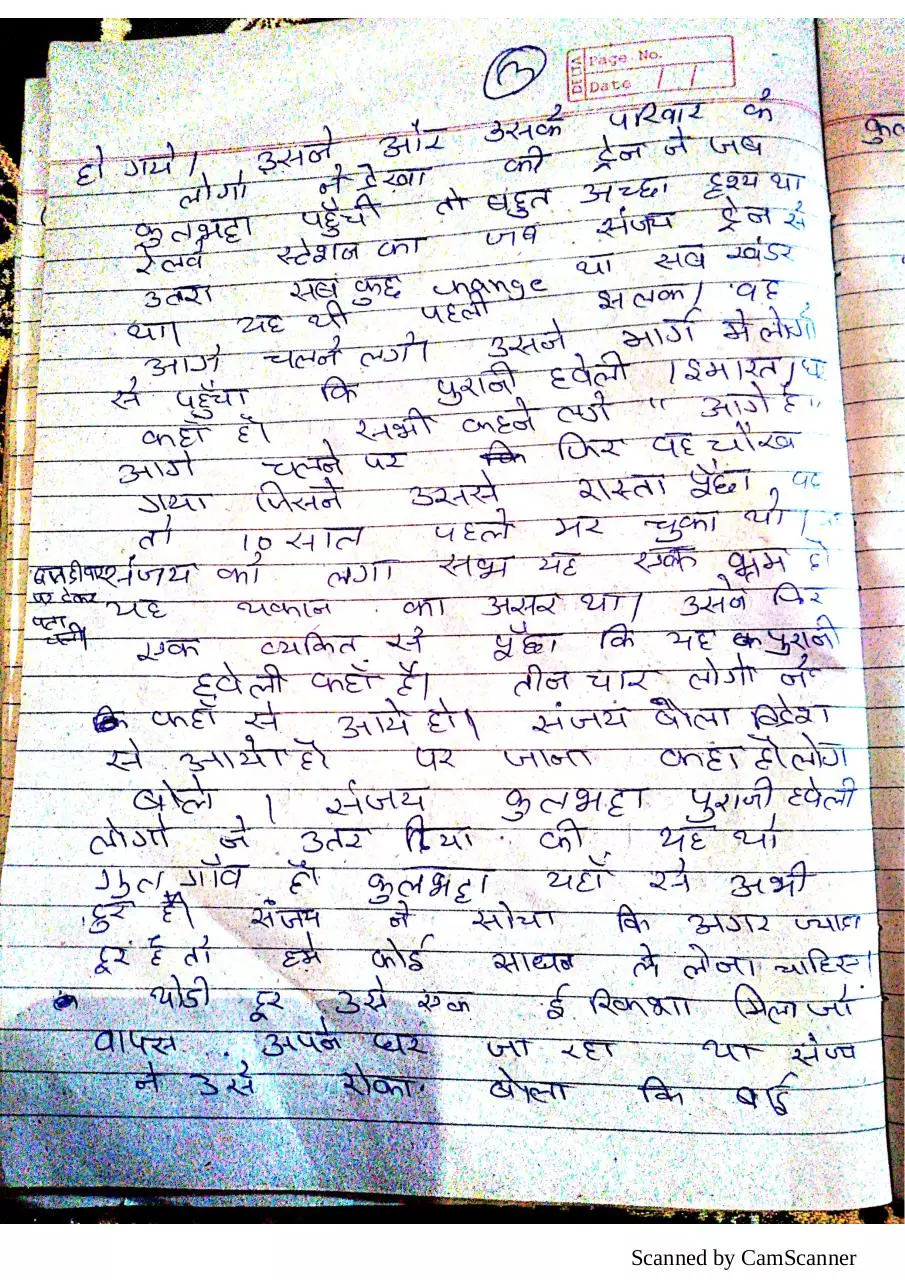 3
DELTA
Page No.
Date / /
हो गये। उसने और उसके परिवार के
लोगो ने देखा की ट्रेन ने जब
कुलभट्टा पहुँची तो बहुत अच्छा दृश्य था
रेलवे स्टेशन का जब संजय ट्रेन से
उतरा सब कुछ change था सब खंडर
था। यह थी पहली झलक। वह
आगे चलने लगे। उसने मार्ग मे लोगों
से पहुँचा कि पुरानी हवेली (इमारत)
कहाँ है। सभी कहने लगे " आगे है"
आगे चलने पर फिर वह चौख
गया जिसने उससे रास्ता पूँछा वह
तो 10 साल पहले मर चुका था।
संजय को लगा सब यह एक भ्रम है
यह थकान का असर था। उसने फिर
पता
चली।
एक व्यकित से पूँछा कि यह पुरानी
हवेली कहाँ है। तीन चार लोगो ने
कहाँ से आये हो। संजय बोला विदेश
से आये है पर जाना कहा है लोग
बोले। संजय कुलभट्टा पुरानी हवेली
लोगो ने उतर दिया की यह थो
गाँव है। कुलभट्टा यहाँ से अभी
दूर है। संजय ने सोचा कि अगर ज्यादा
दूर है तो हमे कोई साधन ले लेना चाहिए।
थोडी दूर उसे एक ई रिक्शा मिला जो
वापस अपने घर जा रहा था संजय
ने उसे रोका बोला कि भाई
कुल
Scanned by CamScanner